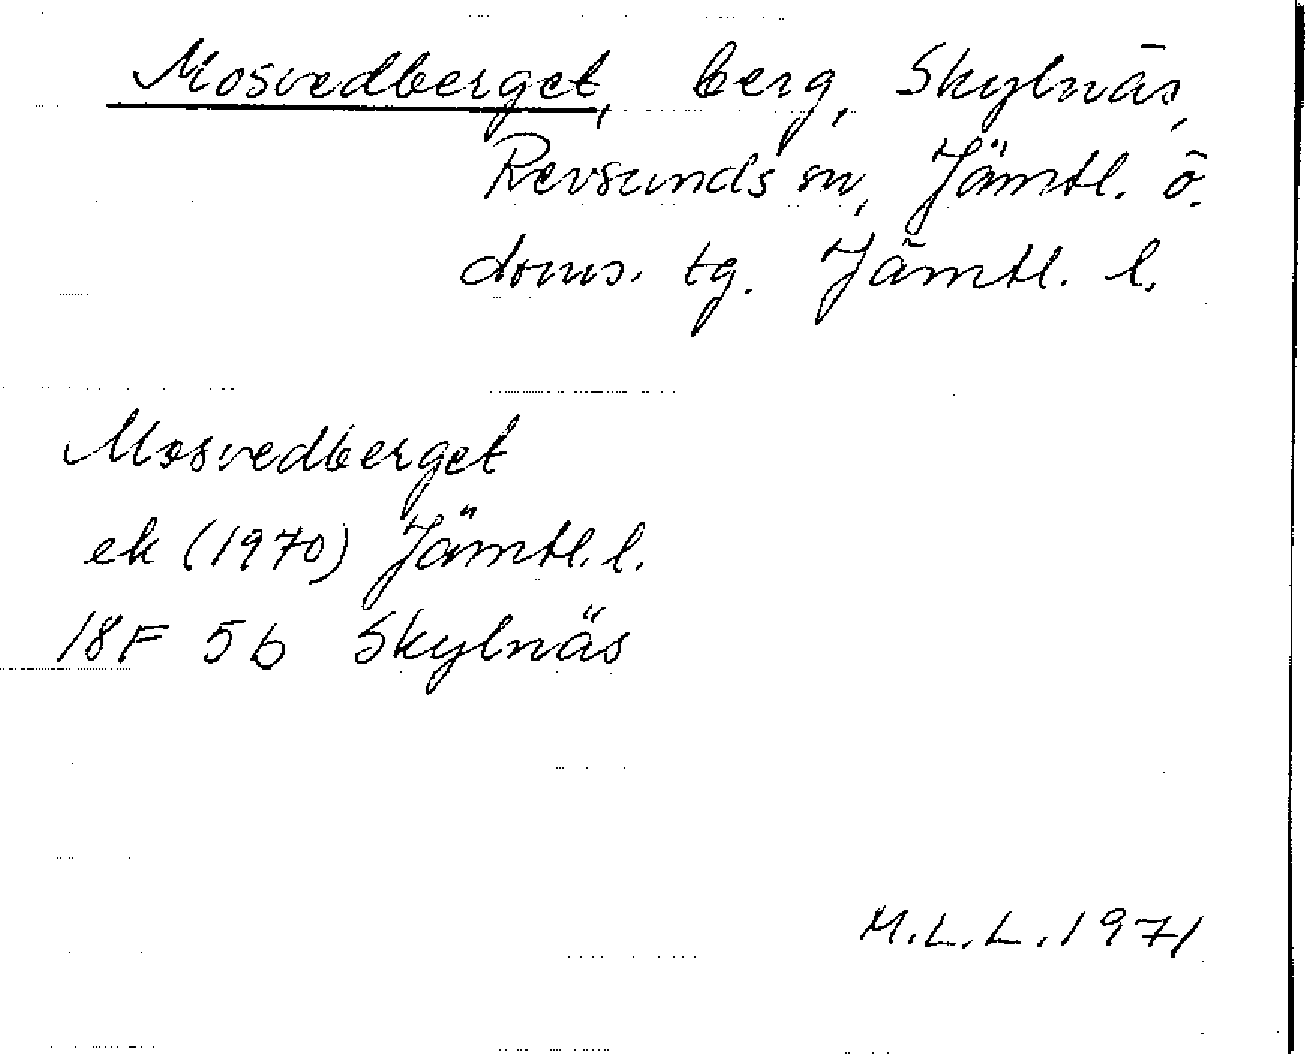 Mosvedberget, berg, Skylnäs,
Revsunds sn, Jämtl. ö.
doms. tg. Jämtl. l.
Mosvedberget
ek (1970) Jämtl. l.
18F 5b Skylnäs
M.L.L. 1971